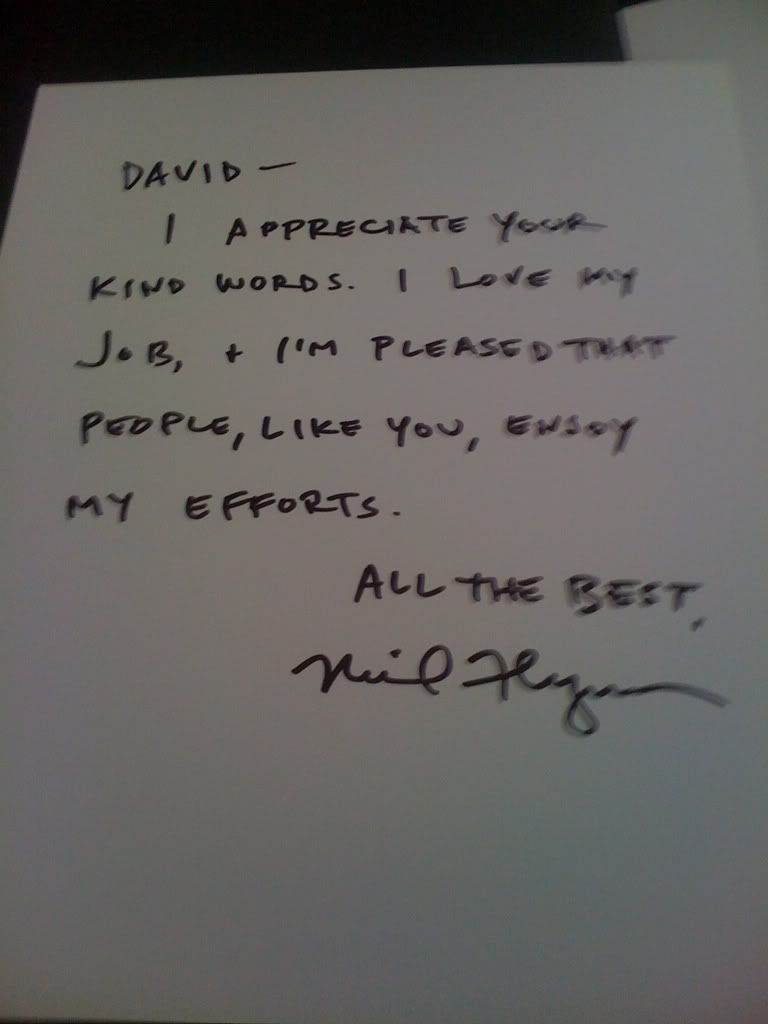 DAVID —
I APPRECIATE YOUR
KIND WORDS. I LOVE MY
JOB, + I'M PLEASED THAT
PEOPLE, LIKE YOU, ENJOY
MY EFFORTS.
ALL THE BEST,
Neil Flynn